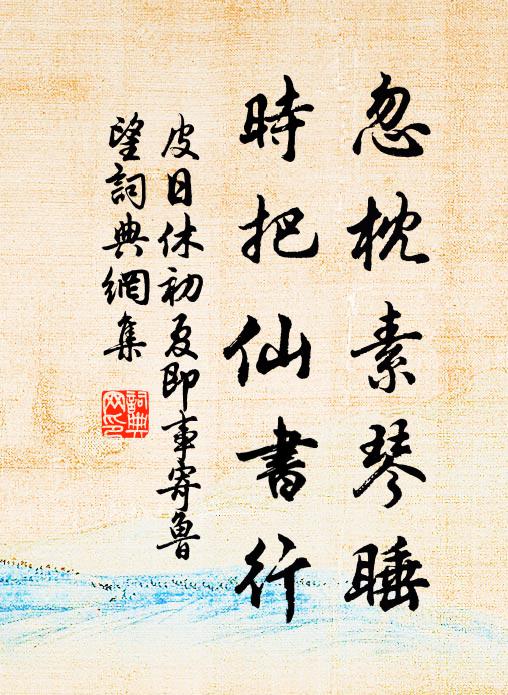 忽枕素琴睡
時把仙書行
皮日休初夏即事寄魯
望詞典網集
詞典
网印